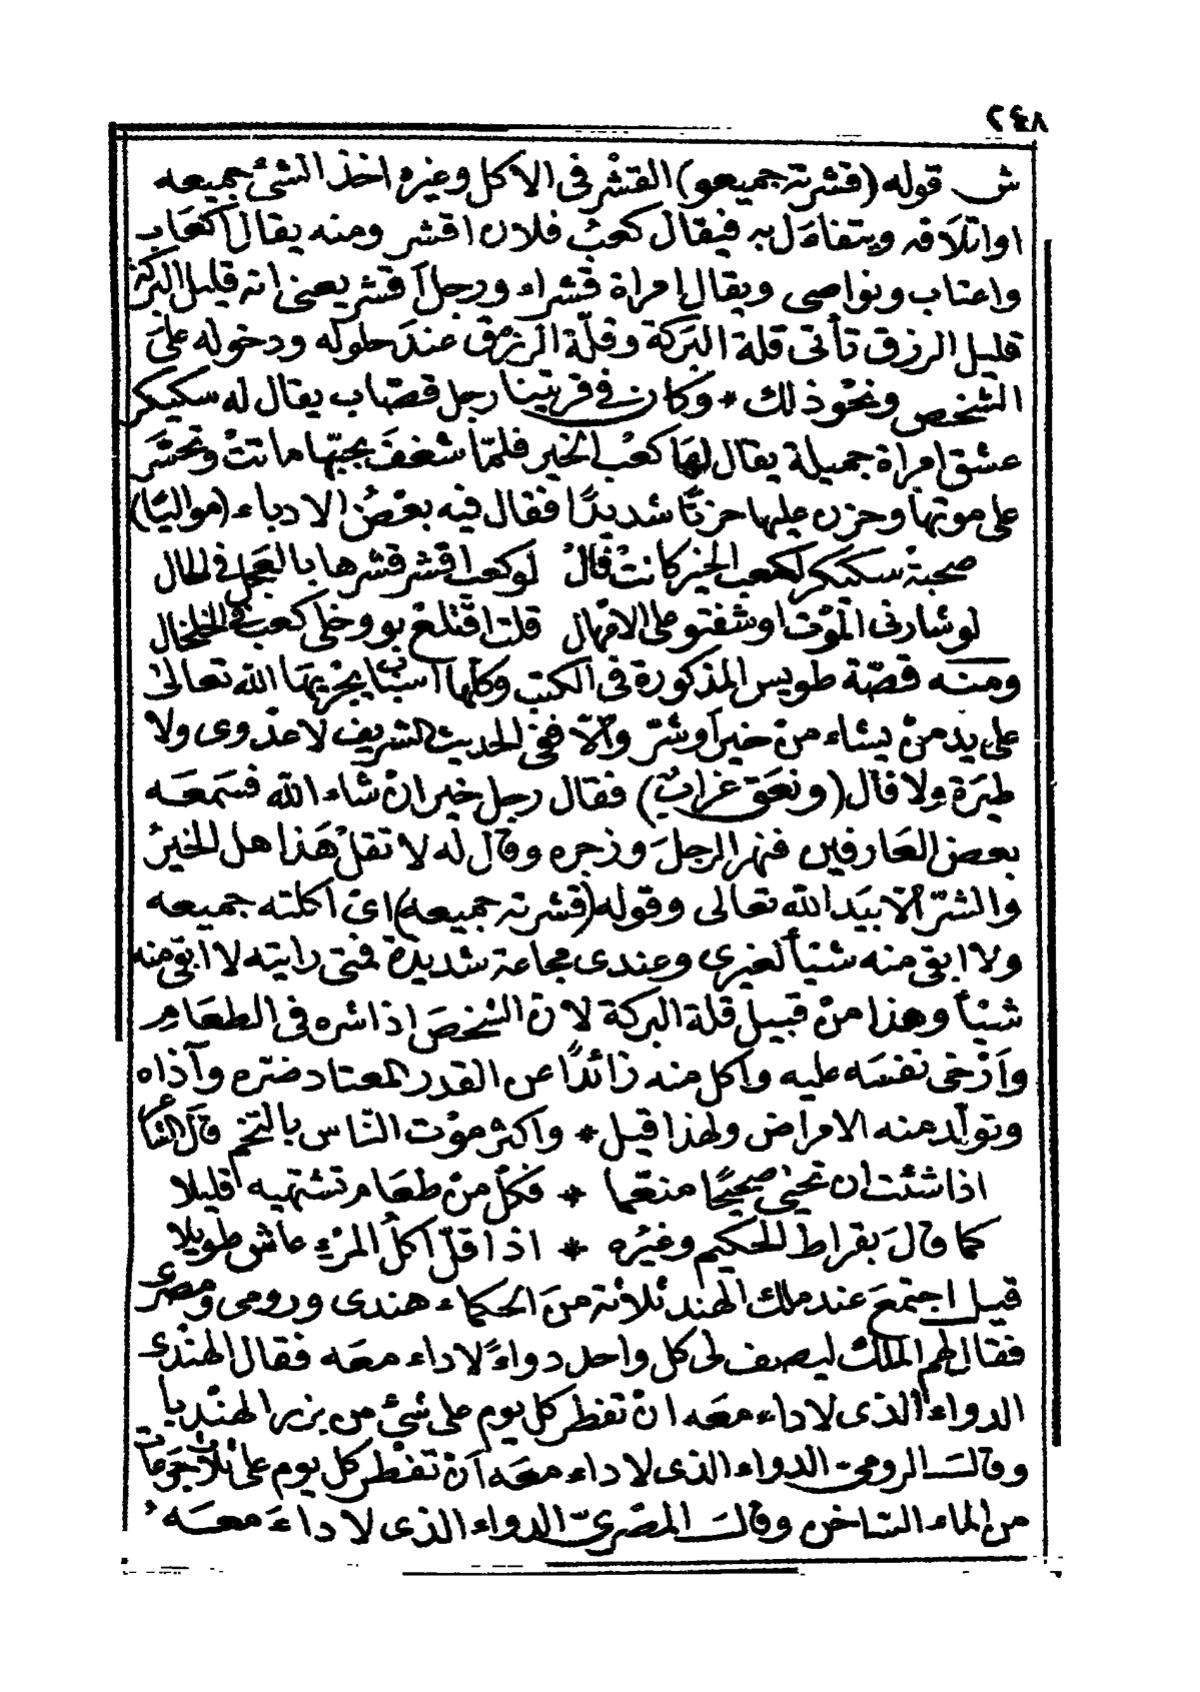 ٢٤٨
ش قوله (قشرته جميعو) القشر فى الاكل وغيره اخذ الشئ جميعه
او اتلافه ويتفاءل به فيقال كعب فلان اقشر ومنه يقال اكعاب
واعتاب ونواصى ويقال امراة قشراء ورجل اقشر يعنى انه قليل البركة
قليل الرزق تأتى قلة البركة وقلّة الرزق عند حلوله ودخوله على
الشخص ونحو ذلك * وكان فى قريتنا رجل قصّاب يقال له سكيكر
عشق امراة جميلة يقال لها كعب الخير فلمّا شغف بحبّها ماتت وتحسّر
على موتها وحزن عليها حزنًا شديدًا فقال فيه بعض الادباء (مواليًا)
صحبة سكيكر لكعب الخير كانت فال لو كعب اقشر قشرها بالعجل فى الحال
لو شار فى الموت او شفتو على الامهال قلت اقتلع بو وخلى كعب فى الخلخال
ومنه قصّة طويس المذكورة فى الكتب وكلها اسباب يجريها الله تعالى
على يد من يشاء من خير او شرّ والّا ففى الحديث الشريف لا عدوى ولا
طيرة ولا فال (ونعق غراب) فقال رجل خير ان شاء الله فسمعه
بعض العارفين فنهر الرجل وزجره وقال له لا تقل هذا هل الخير
والشرّ الا بيد الله تعالى وقوله (قشرته جميعه) اى اكلته جميعه
ولا ابقى منه شيئاً لغيرى وعندى مجاعة شديدة فمتى رايته لا ابقى منه
شيئاً وهذا من قبيل قلة البركة لان الشخص اذا شره فى الطعام
وارخى نفسه عليه واكل منه زائدًا عن القدر المعتاد ضره وآذاه
وتولّد منه الامراض ولهذا قيل * واكثر موت الناس بالتخم قال الشاعر
اذا شئت ان تحيى صحيحًا منعّما * فكل من طعام تشتهيه اقليلا
كما قال بقراط الحكيم وغيره * اذا قلّ اكل المرء عاش طويلا
قيل اجتمع عند ملك الهند ثلاثة من الحكماء هندى ورومى ومصرى
فقال لهم الملك ليصف لى كل واحد دواءً لا داء معه فقال الهندى
الدواء الذى لا داء معه ان تفطر كل يوم على شئ من بزر الهنديا
وقالـ الرومى الدواء الذى لا داء معه ان تفطر كل يوم على ثلاث جرعات
من الماء الساخن وقالـ المصرىّ الدواء الذى لا داء معه